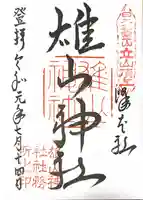 立山頂上
峰本社
雄山神社
登拝 令和元年七月十四日
雄山神社
社務所之印